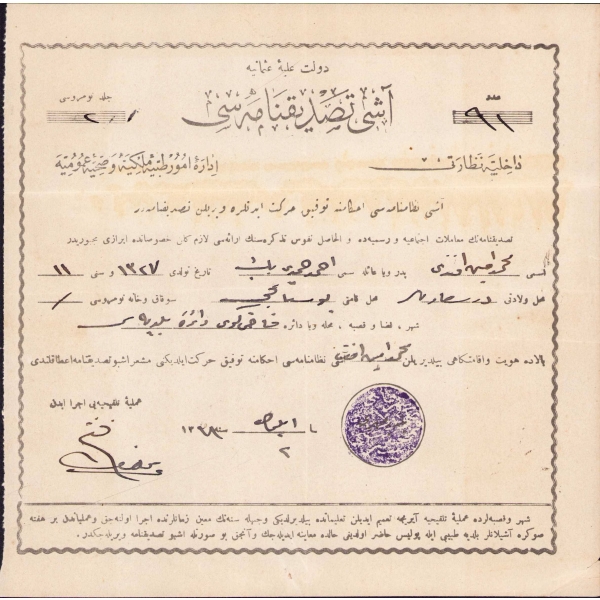 دولت علیهٔ عثمانیه
عدد
۹۱
آشی تصدیقنامه‌سی
جلد نومروسی
۲
داخلیه نظارتی
ادارهٔ امور طبیهٔ ملکیه و صحیهٔ عمومیه
آشی نظامنامه‌سی احکامنه توفیق حرکت ایدنلره ویریلن تصدیقنامه‌در
تصدیقنامه‌نك معاملات اجتماعیه و رسمیه‌ده والحاصل نفوس تذکره‌سنك ارائه‌سی لازم کلن خصوصاتده ابرازی مجبوریدر
اسمی محمد امین افندی پدر ویا عائله سی احمد حمدی بك تاریخ تولدی ۱۳۲۷ و سنی ۱۱
محل ولادتی درسعادت محل اقامتی سوقاق و خانه نومروسی
شهر، قضا و قصبه، محله ویا دائره دائرهٔ بلدیه سی
بالاده هویت و اقامتکاهی بیلدیریلن محمد امین افندینك آشی نظامنامه‌سی احکامنه توفیق حرکت ایلدیکنی مشعر اشبو تصدیقنامه اعطا قلندی
عملیهٔ تلقیحیه‌یی اجرا ایدن
فی ۲ ایلول سنه ۱۳۳۸
شهر و قصبه‌لرده عملیهٔ تلقیحیه آیریجه تعمیم ایدیلن تعلیماتده بیلدیرلدیکی وجهله سنه‌نك معین زمانلرنده اجرا اولنه‌جق و عملیاتدن بر هفته
صوکره آشیلانلر بلدیه طبیبی ایله پولیس حاضر اولدیغی حالده معاینه ایدیله‌جك و آنجق بو صورتله اشبو تصدیقنامه ویریله‌جکدر.